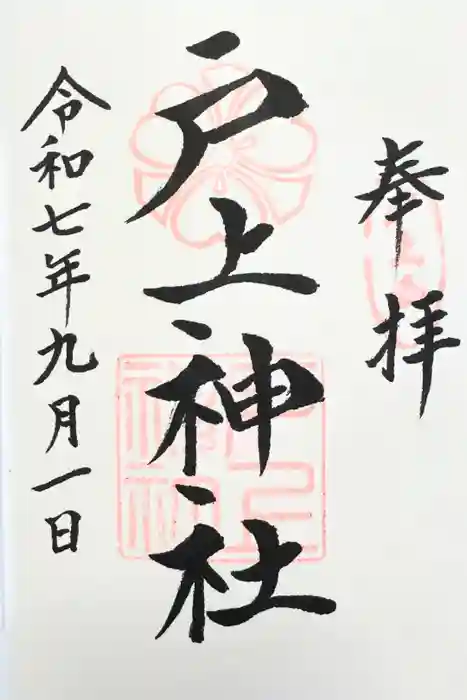 奉拝
戸上神社
令和七年九月一日